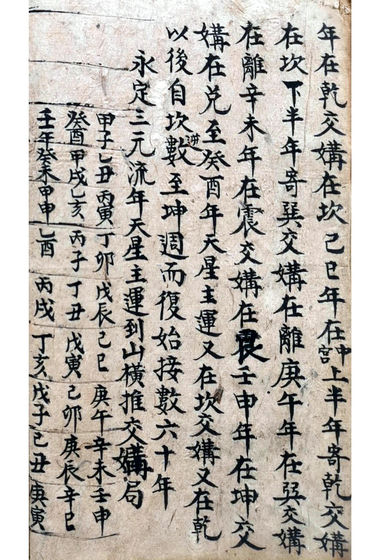 年在乾交媾在坎己巳年在中宮上半年寄乾交媾
在坎下半年寄巽交媾在離庚午年在巽交媾
在離辛未年在震交媾在艮壬申年在坤交
媾在兑至癸酉年天星主運又在坎交媾又在乾
以後自坎逆數至坤週而復始接數六十年
永定三元流年天星主運到山橫推交媾局
甲子乙丑丙寅丁卯戊辰己巳庚午辛未壬申
癸酉甲戌乙亥丙子丁丑戊寅己卯庚辰辛巳
壬午癸未甲申乙酉丙戌丁亥戊子己丑庚寅